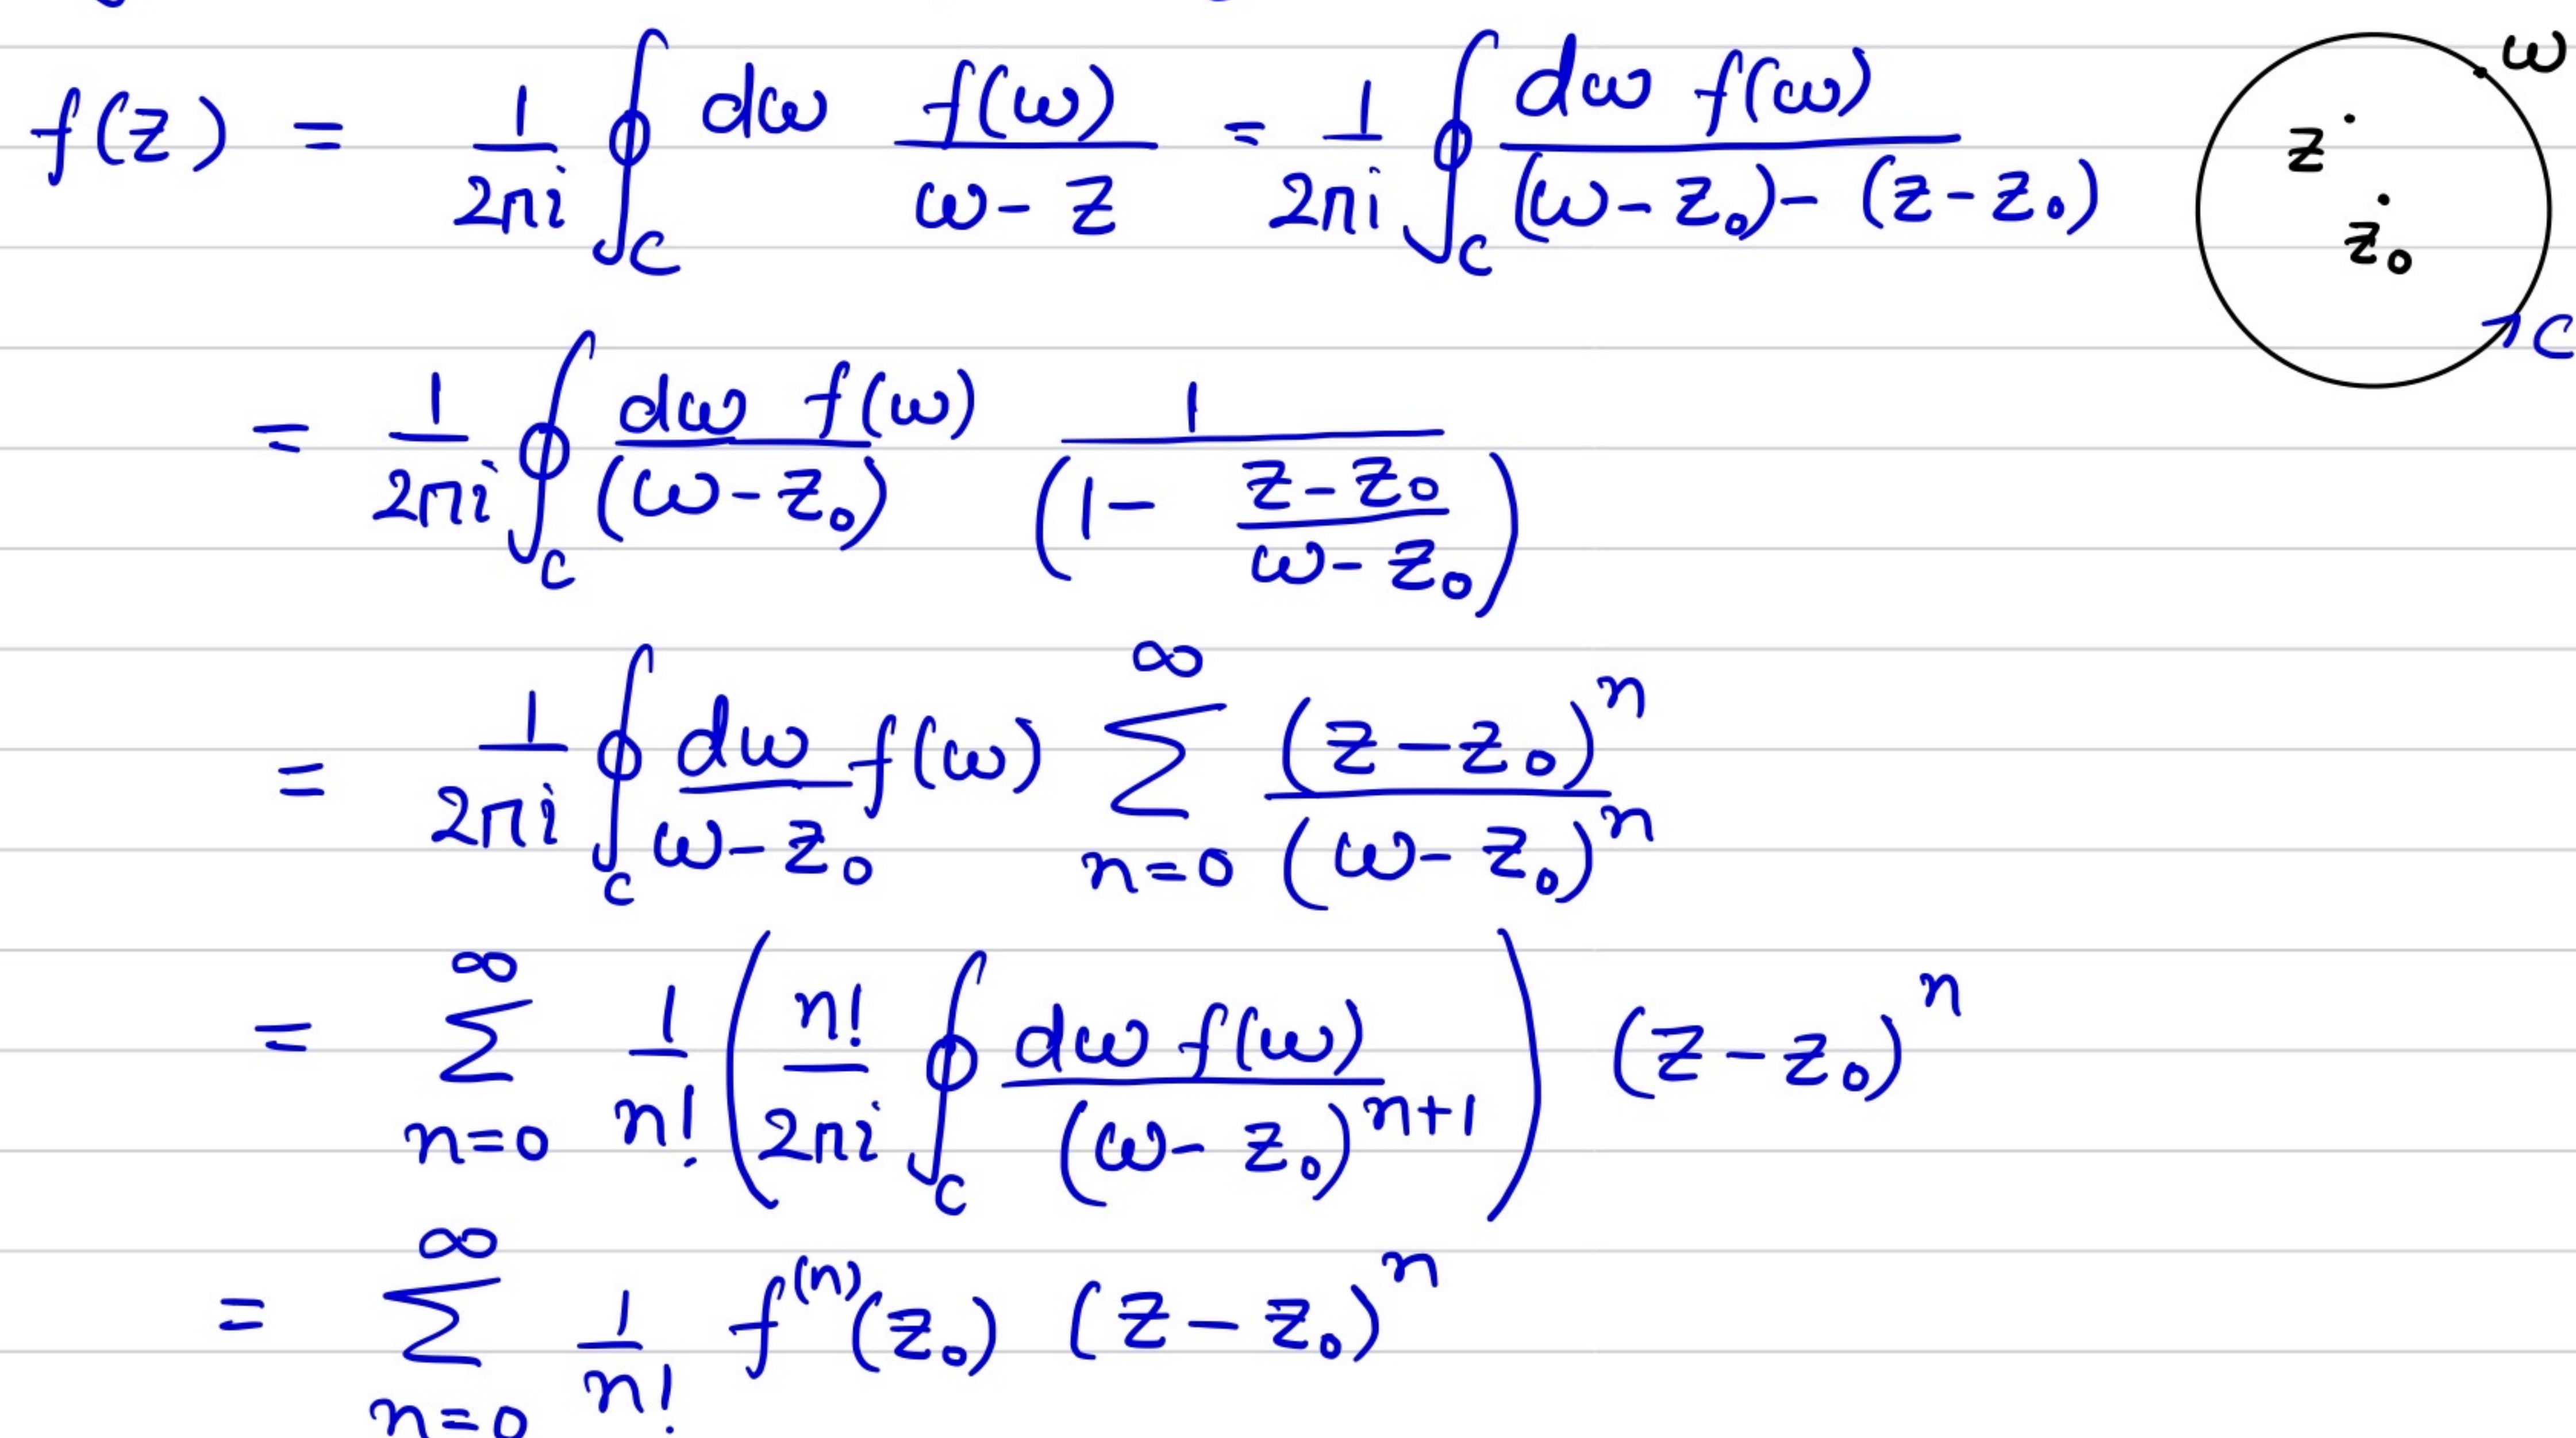 f(z) = \frac{1}{2πi} ∮_C dω \frac{f(ω)}{ω - z} = \frac{1}{2πi} ∮_C \frac{dω f(ω)}{(ω - z_0) - (z - z_0)}
ω
z
z_0
C
= \frac{1}{2πi} ∮_C \frac{dω f(ω)}{(ω - z_0)} \frac{1}{(1 - \frac{z - z_0}{ω - z_0})}
= \frac{1}{2πi} ∮_C \frac{dω}{ω - z_0} f(ω) \sum_{n=0}^{∞} \frac{(z - z_0)^n}{(ω - z_0)^n}
= \sum_{n=0}^{∞} \frac{1}{n!} (\frac{n!}{2πi} ∮_C \frac{dω f(ω)}{(ω - z_0)^{n+1}}) (z - z_0)^n
= \sum_{n=0}^{∞} \frac{1}{n!} f^{(n)}(z_0) (z - z_0)^n